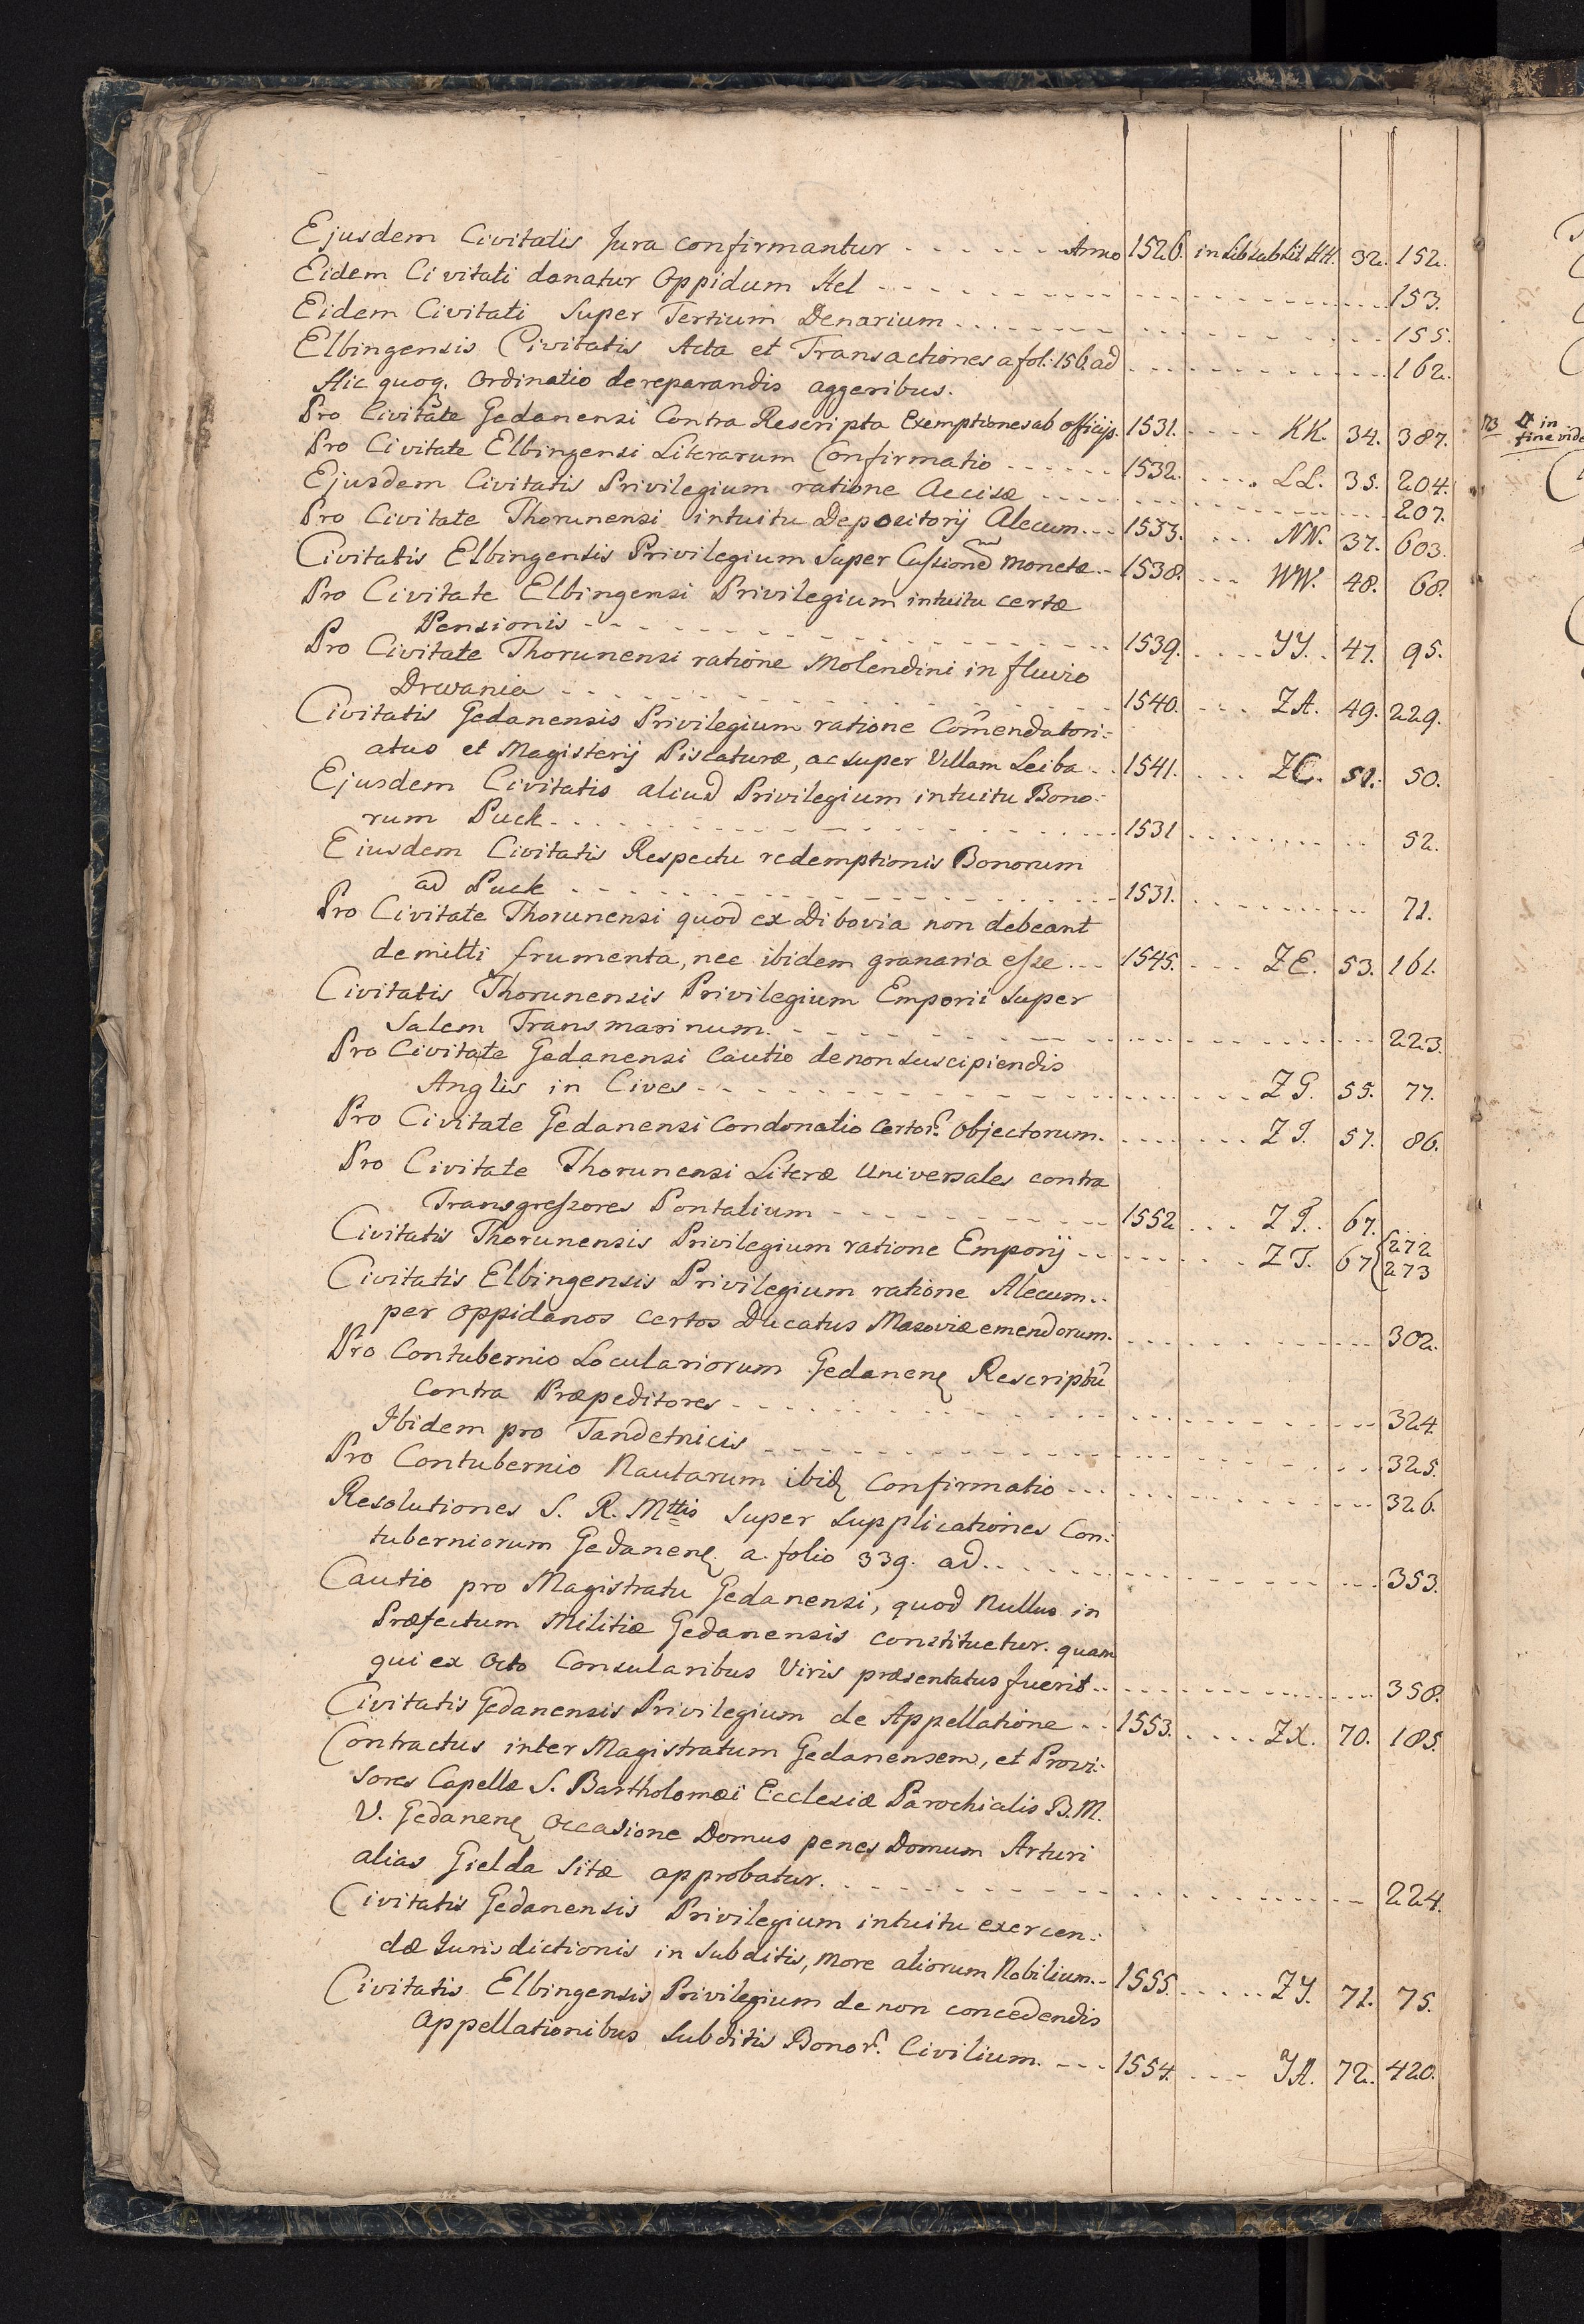 Ejusdem Civitatis Jura confirmantur - - - - - - Anno 1526. in Lib sub Lit HH. 32. 152.
Eidem Civitati donatur Oppidum Hel - - - - - - 153.
Eidem Civitati super Tertium Denarium - - - - - - 155.
Elbingensis Civitatis Acta et Transactiones a fol: 156. ad - - - - - - 162.
Hic quoq. Ordinatio de reparandis aggeribus.
Pro Civitate Gedanensi Contra Rescripta Exemptiones ab officijs. 1531. - - - - KK. 34. 387.
Pro Civitate Elbingensi Literarum Confirmatio - - - - - - 1532. - - - - LL. 35. 204.
Ejusdem Civitatis Privilegium ratione Accisæ - - - - - - 207.
Pro Civitate Thorunensi intuitu Depositorij Alecum - - - 1533. - - - NN. 37. 603.
Civitatis Elbingensis Privilegium super Cussione Monetæ - - 1538. - - - WW. 48. 68.
Pro Civitate Elbingensi Privilegium intuitu certæ
Pensionis - - - - - - 1539. - - - - YY. 47. 95.
Pro Civitate Thorunensi ratione Molendini in fluvio
Drwania - - - - - - 1540. - - - ZA. 49. 229.
Civitatis Gedanensis Privilegium ratione Com̃endatori:
atus et Magisterij Piscaturæ, ac super Villam Leiba - - 1541. - - - ZC. 51. 50.
Ejusdem Civitatis aliud Privilegium intuitu Bono:
rum Puck - - - - - - 1531 - - - - - - 52.
Eiusdem Civitatis Respectu redemptionis Bonorum
ad Puck - - - - - - 1531. - - - - - - 71.
Pro Civitate Thorunensi quod ex Dibovia non debeant
demitti frumenta, nec ibidem granaria esse - - - 1545. - - - ZE. 53. 161.
Civitatis Thorunensis Privilegium Emporii super
Salem Transmarinum. - - - - - - 223.
Pro Civitate Gedanensi Cautio de non suscipiendis
Anglis in Cives - - - - - - ZG. 55. 77.
Pro Civitate Gedanensi Condonatio certor. Objectorum. - - - - - - ZI. 57. 86.
Pro Civitate Thorunensi Literæ Universales contra
Transgressores Pontalium - - - - - - 1552 - - - ZT. 67.
Civitatis Thorunensis Privilegium ratione Emporij - - - - - - ZT. 67 { 272
273
Civitatis Elbingensis Privilegium ratione Alecum..
per oppidanos certos Ducatus Masoviæ emendorum. - - - - - - 302.
Pro Contubernio Loculariorum Gedanens Rescriptũ
contra Præpeditores - - - - - - 324.
Ibidem pro Tandetnicis - - - - - - 325.
Pro Contubernio Nautarum ibid Confirmatio - - - - - - 326.
Resolutiones S. R. Mttis super supplicationes Con:
tuberniorum Gedanens. a folio 339. ad - - - - - - 353.
Cautio pro Magistratu Gedanensi, quod Nullus in
Præfectum Militiæ Gedanensis constituetur. quam
qui ex Octo Consularibus Viris præsentatus fuerit - - - - - - 358.
Civitatis Gedanensis Privilegium de Appellatione - - 1553. - - - - ZX. 70. 185.
Contractus inter Magistratum Gedanensem, et Provi:
sores Capellæ S. Bartholomæi Ecclesiæ Parochialis B. M.
V. Gedanens Occasione Domus penes Domum Arturi
alias Gielda sitæ approbatur. - - - - - - 224.
Civitatis Gedanensis Privilegium intuitu exercen:
dæ Jurisdictionis in subditis, more aliorum Nobilium - - 1555. - - - - - ZY. 71. 75.
Civitatis Elbingensis Privilegium de non concedendis
Appellationibus subditis Bonor. Civilium. - - - 1554. - - - YA. 72. 420.
in
fine vide